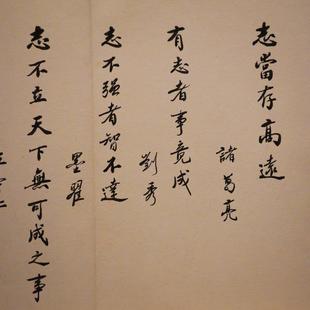 志當存高遠
諸葛亮
有志者事竟成
劉秀
志不强者智不達
墨翟
志不立天下無可成之事